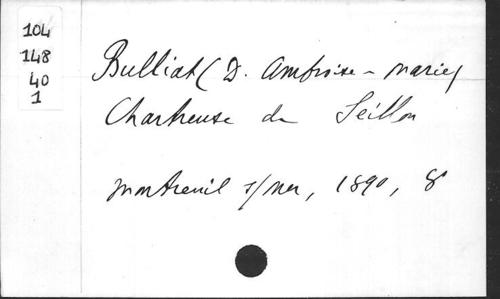 104
148
40
1
Bulliat (D. Ambroise-Marie)
Chartreuse de Seillon
Montreuil s/mer, 1890, 8°